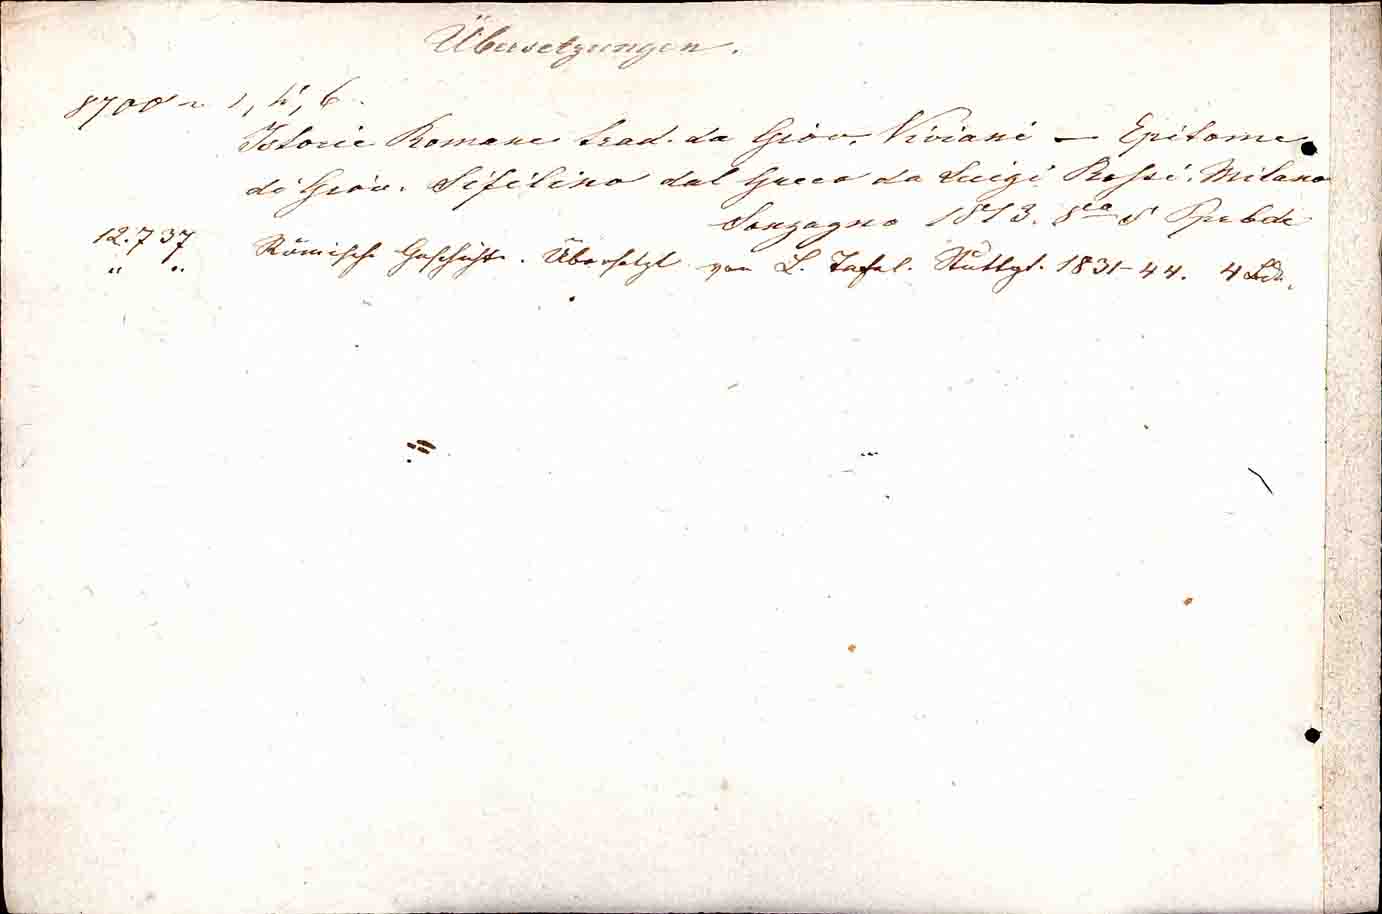 Übersetzungen.
8700 1, 4, 6.
Istorie Romane trad. da Giov. Viviani — Epitome
di Giov. Sifilino dal Greco da Luigi Bossi. Milano
Sonzogno 1873. 8
12.737 Römische Geschichte. Übersetzt von L. Tafel. Stuttgt. 1831-44. 4 Bde.
" "